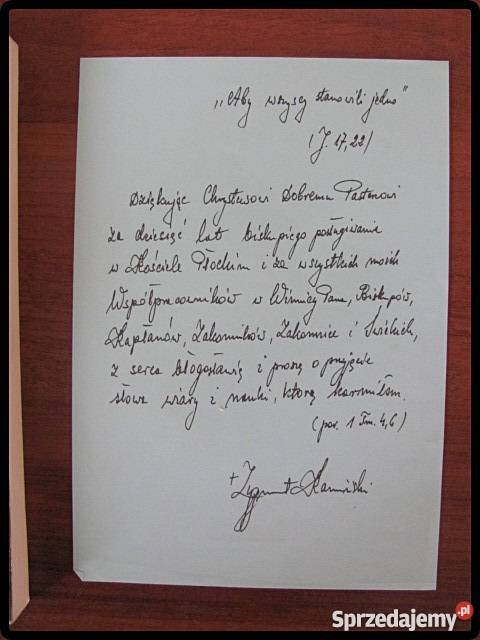 „Aby wszyscy stanowili jedno”
(J. 17,22)
Dziękując Chrystusowi Dobremu Pasterzowi
za dziesięć lat biskupiego posługiwania
w Kościele Płockim i za wszystkich moich
Współpracowników w Winnicy Pana, Biskupów,
Kapłanów, Zakonników, Zakonnice i Świeckich,
z serca błogosławię i proszę o przyjęcie
słowa wiary i nauki, którą karmiłem.
(por. 1 Tm. 4,6)
+ Zygmunt Kamiński
Sprzedajemy.pl